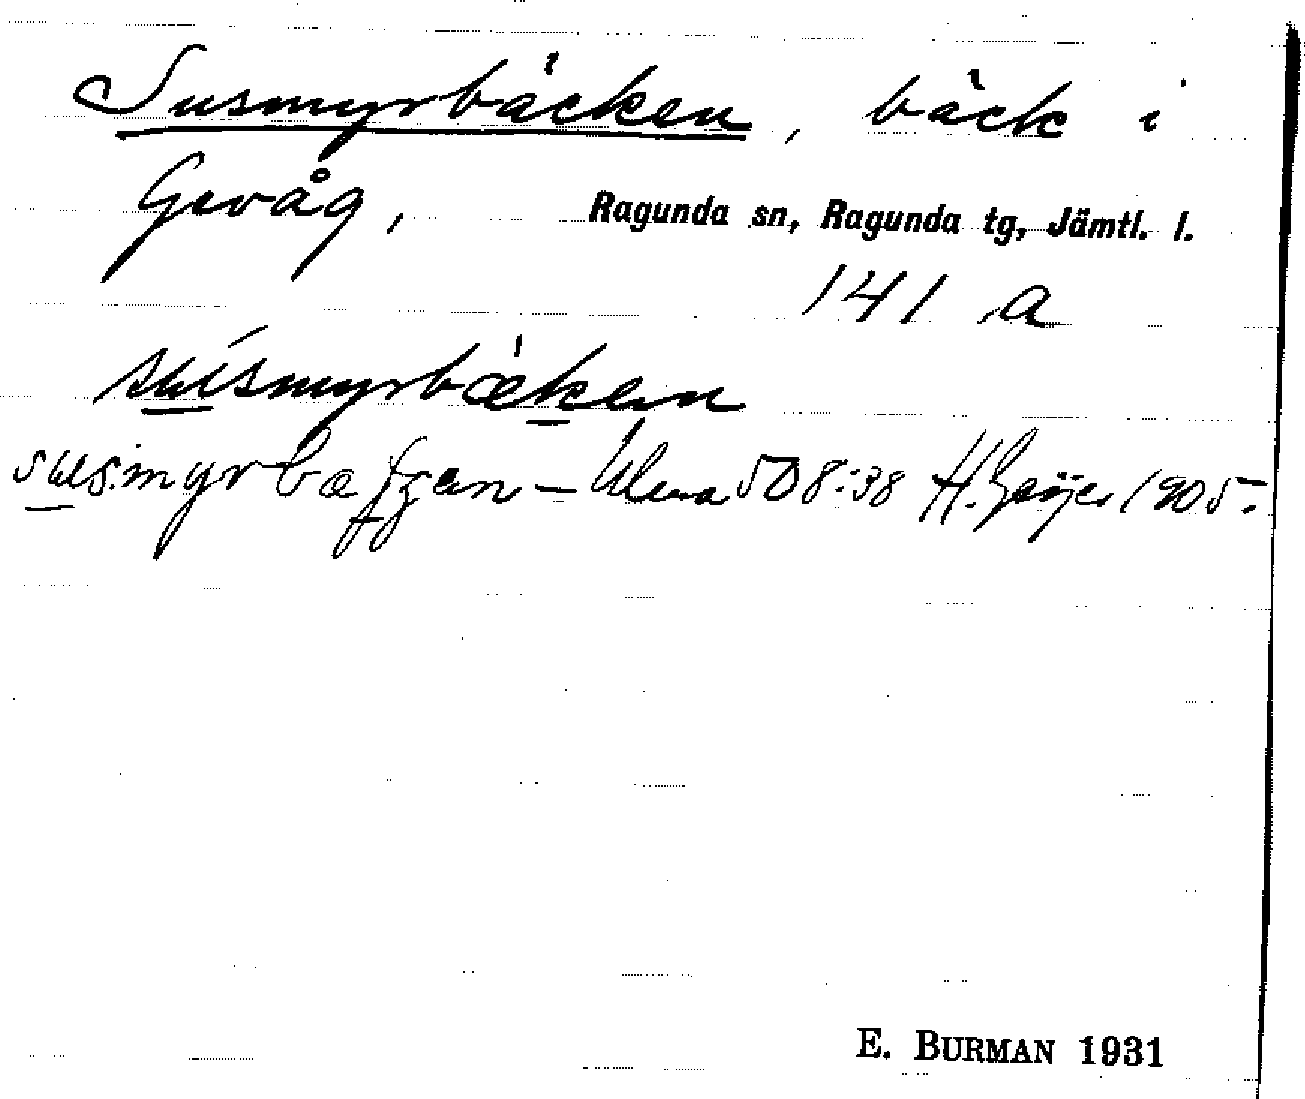 Susmyrbäcken, bäck i
Gevåg, Ragunda sn, Ragunda tg, Jämtl. l.
141 a
susmyrbæken
susmyrbæ - Ulma 508:38 H. Geijer 1905.
E. BURMAN 1931